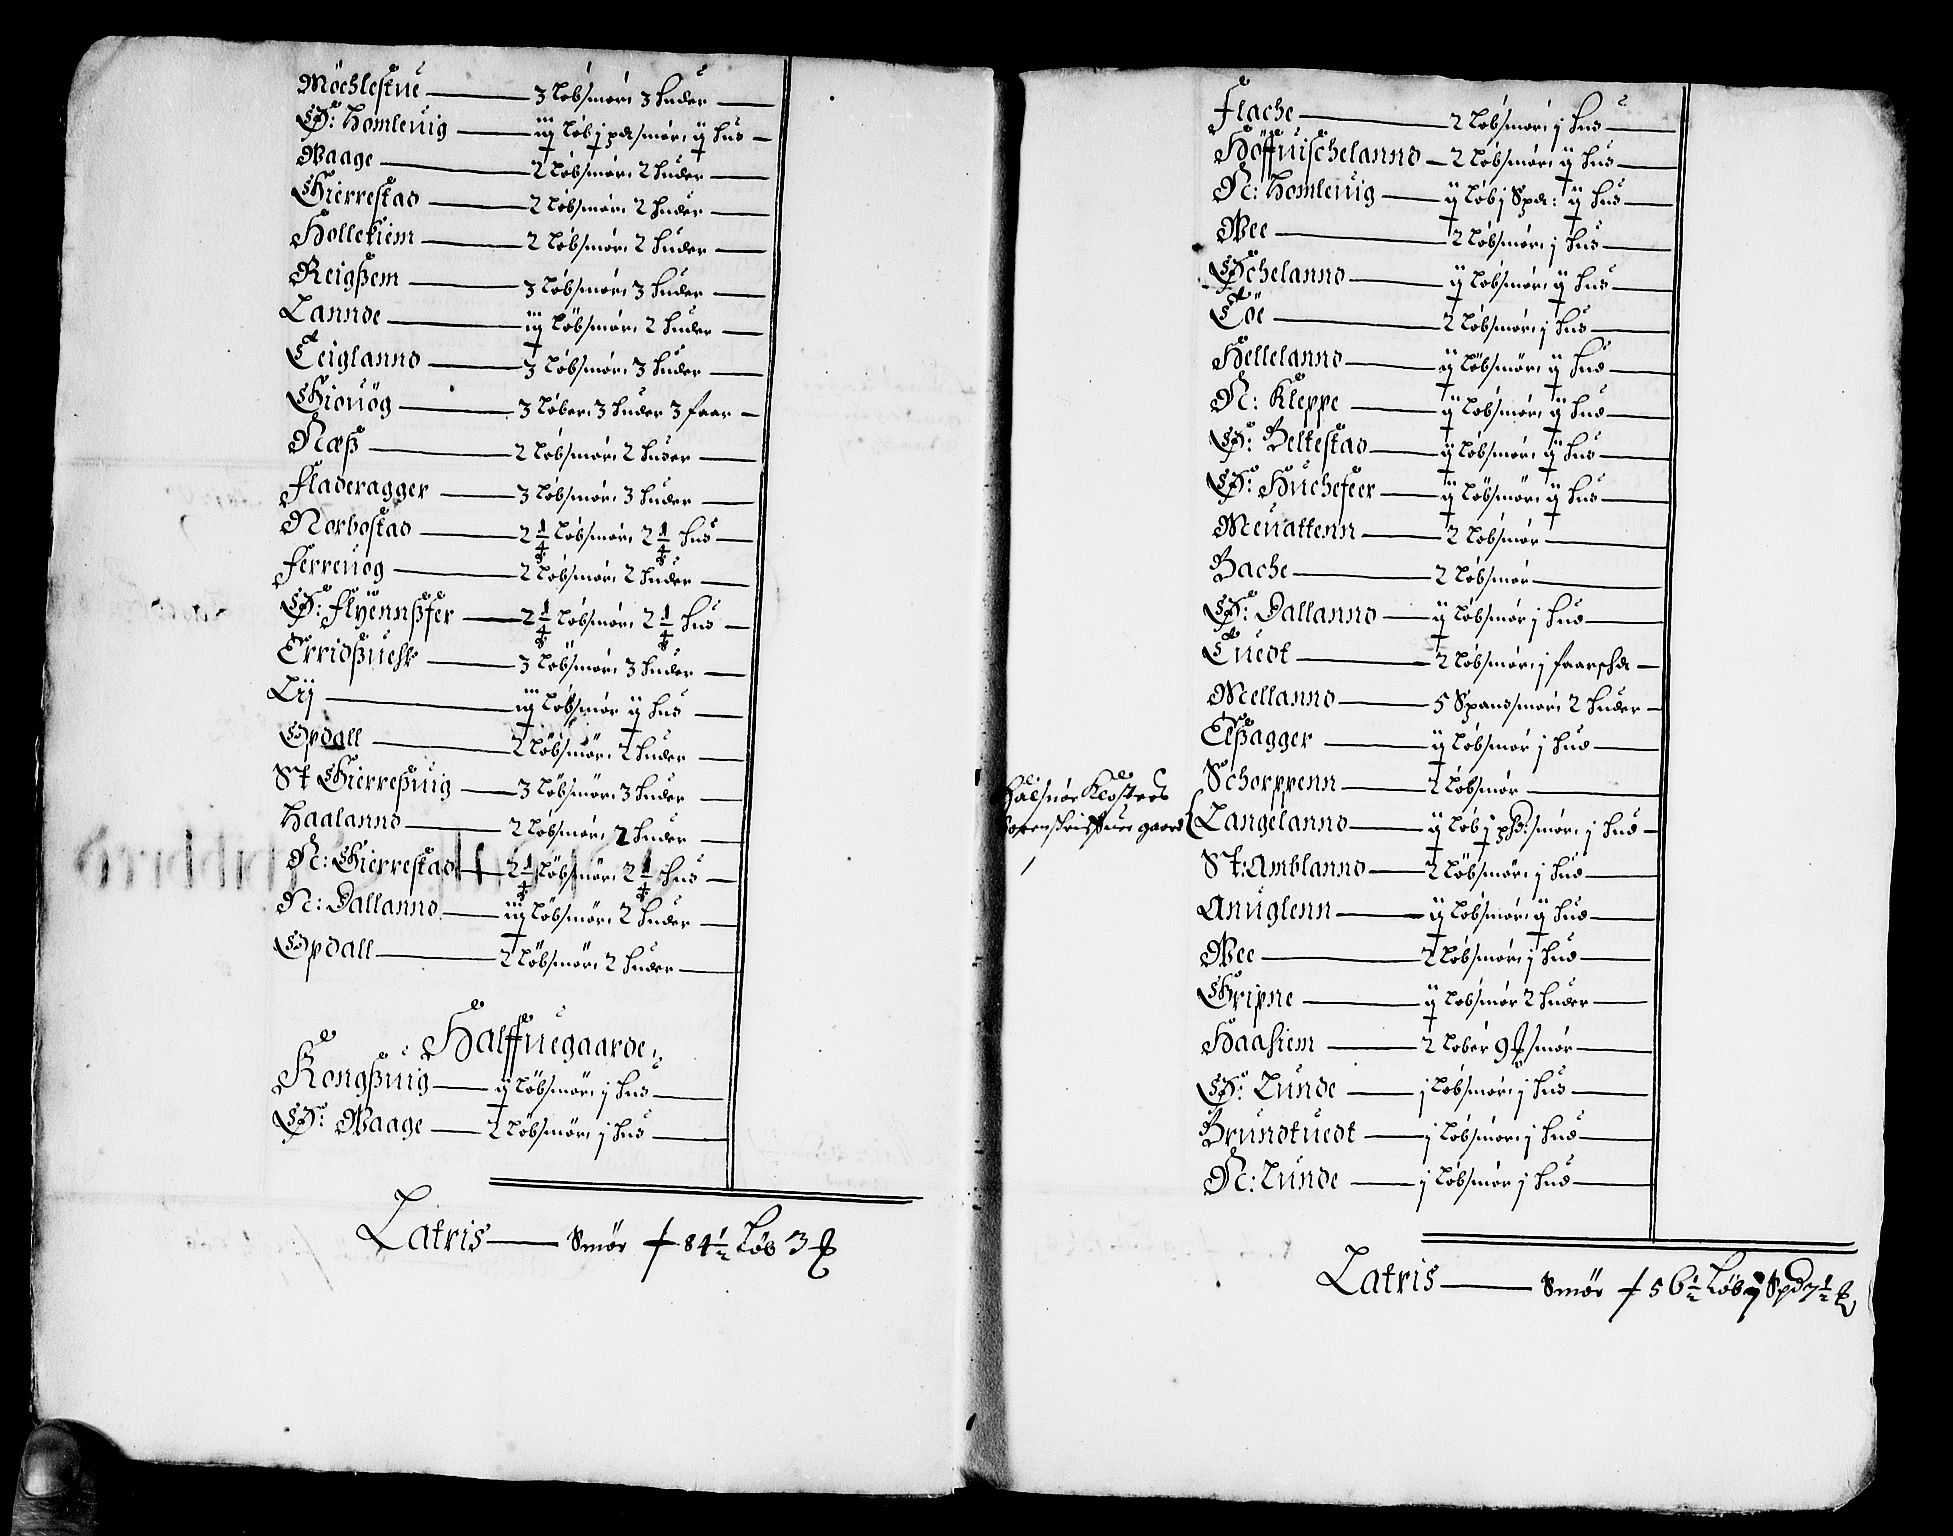 Möchlestue — 3 Löbsmör: 3 huder
Ø: Homleuig — iij Löb j pd smör: ij hud
Waage — 2 löbsmör: 2 huder
Gierrestad — 2 löbsmör: 2 huder
HolleKiem — 2 löbsmör: 2 huder
Reigßem — 3 löbsmör: 3 huder
Lannde — iij löbsmör: 2 huder
Teiglannd — 3 löbsmör: 3 huder
Giouög — 3 löber: 3 huder 3 faar
Næß — 2 löbsmör: 2 huder
Fladeragger — 3 löbsmör: 3 huder
Norbostad — 2 1/4 löbsmör: 2 1/4 hud
Ferreuog — 2 löbsmör: 2 huder
Ø: Flyennßfer — 2 1/4 löbsmör: 2 1/4 hud
Erridßuesk — 3 löbsmör: 3 huder
Lij — iij löbsmör ij hud
Opdall — 2 löbsmör: 2 huder
St Gierreßuig — 3 löbsmör: 3 huder
Haalannd — 2 löbsmör: 2 huder
N: Gierrestad — 2 1/4 löbsmör: 2 1/4 hud
N: Dallannd — iij löbsmör: 2 huder
Opdall — 2 löbsmör: 2 huder
Halffuegaarde:
Kongßuig — ij löbsmör: j hud
Ø: Waage — 2 löbsmör: j hud
Latris — Smör 84 1/2 Löb 3 ℔
Flache — 2 löbsmör: j hud
Höffuischelannd — 2 löbsmör: ij hud
N: Homleuig — ij löb j Spd: ij hud
Wee — 2 löbsmör: j hud
Øchelannd — ij löbsmör: ij hud
Töe — 2 löbsmör: j hud
Hellelannd — ij löbsmör: ij hud
N: Kleppe — ij löbsmör: ij hud
Ø: Beltestad — ij löbsmör: ij hud
Ø: Huchefeer — ij löbsmör: ij hud
Meuattenn — 2 löbsmör
Bache — 2 löbsmör
Ø: Dallannd — ij löbsmör j hud
Tuedt — 2 löbsmör: j faarschd
Mellannd — 5 Spandsmör: 2 huder
Elßagger — ij löbsmör j hud
Schorppenn — 2 löbsmör
Halsnöe Klosters
gaard
Langelannd — ij löb j pd: smör: j hud
St: Amblannd — 2 löbsmör: j hud
Anuglenn — ij löbsmör: ij hud
Wee — 2 löbsmör: j hud
Gripne — ij löbsmör 2 huder
Haasiem — 2 löber 9 ℔ smör
Ø: Lunde — j löbsmör: j hud
Brundtuedt — j löbsmör: j hud
N: Lunde — j löbsmör j hud
Latris — Smör 56 1/2 Löb j Spd 7 1/2 ℔